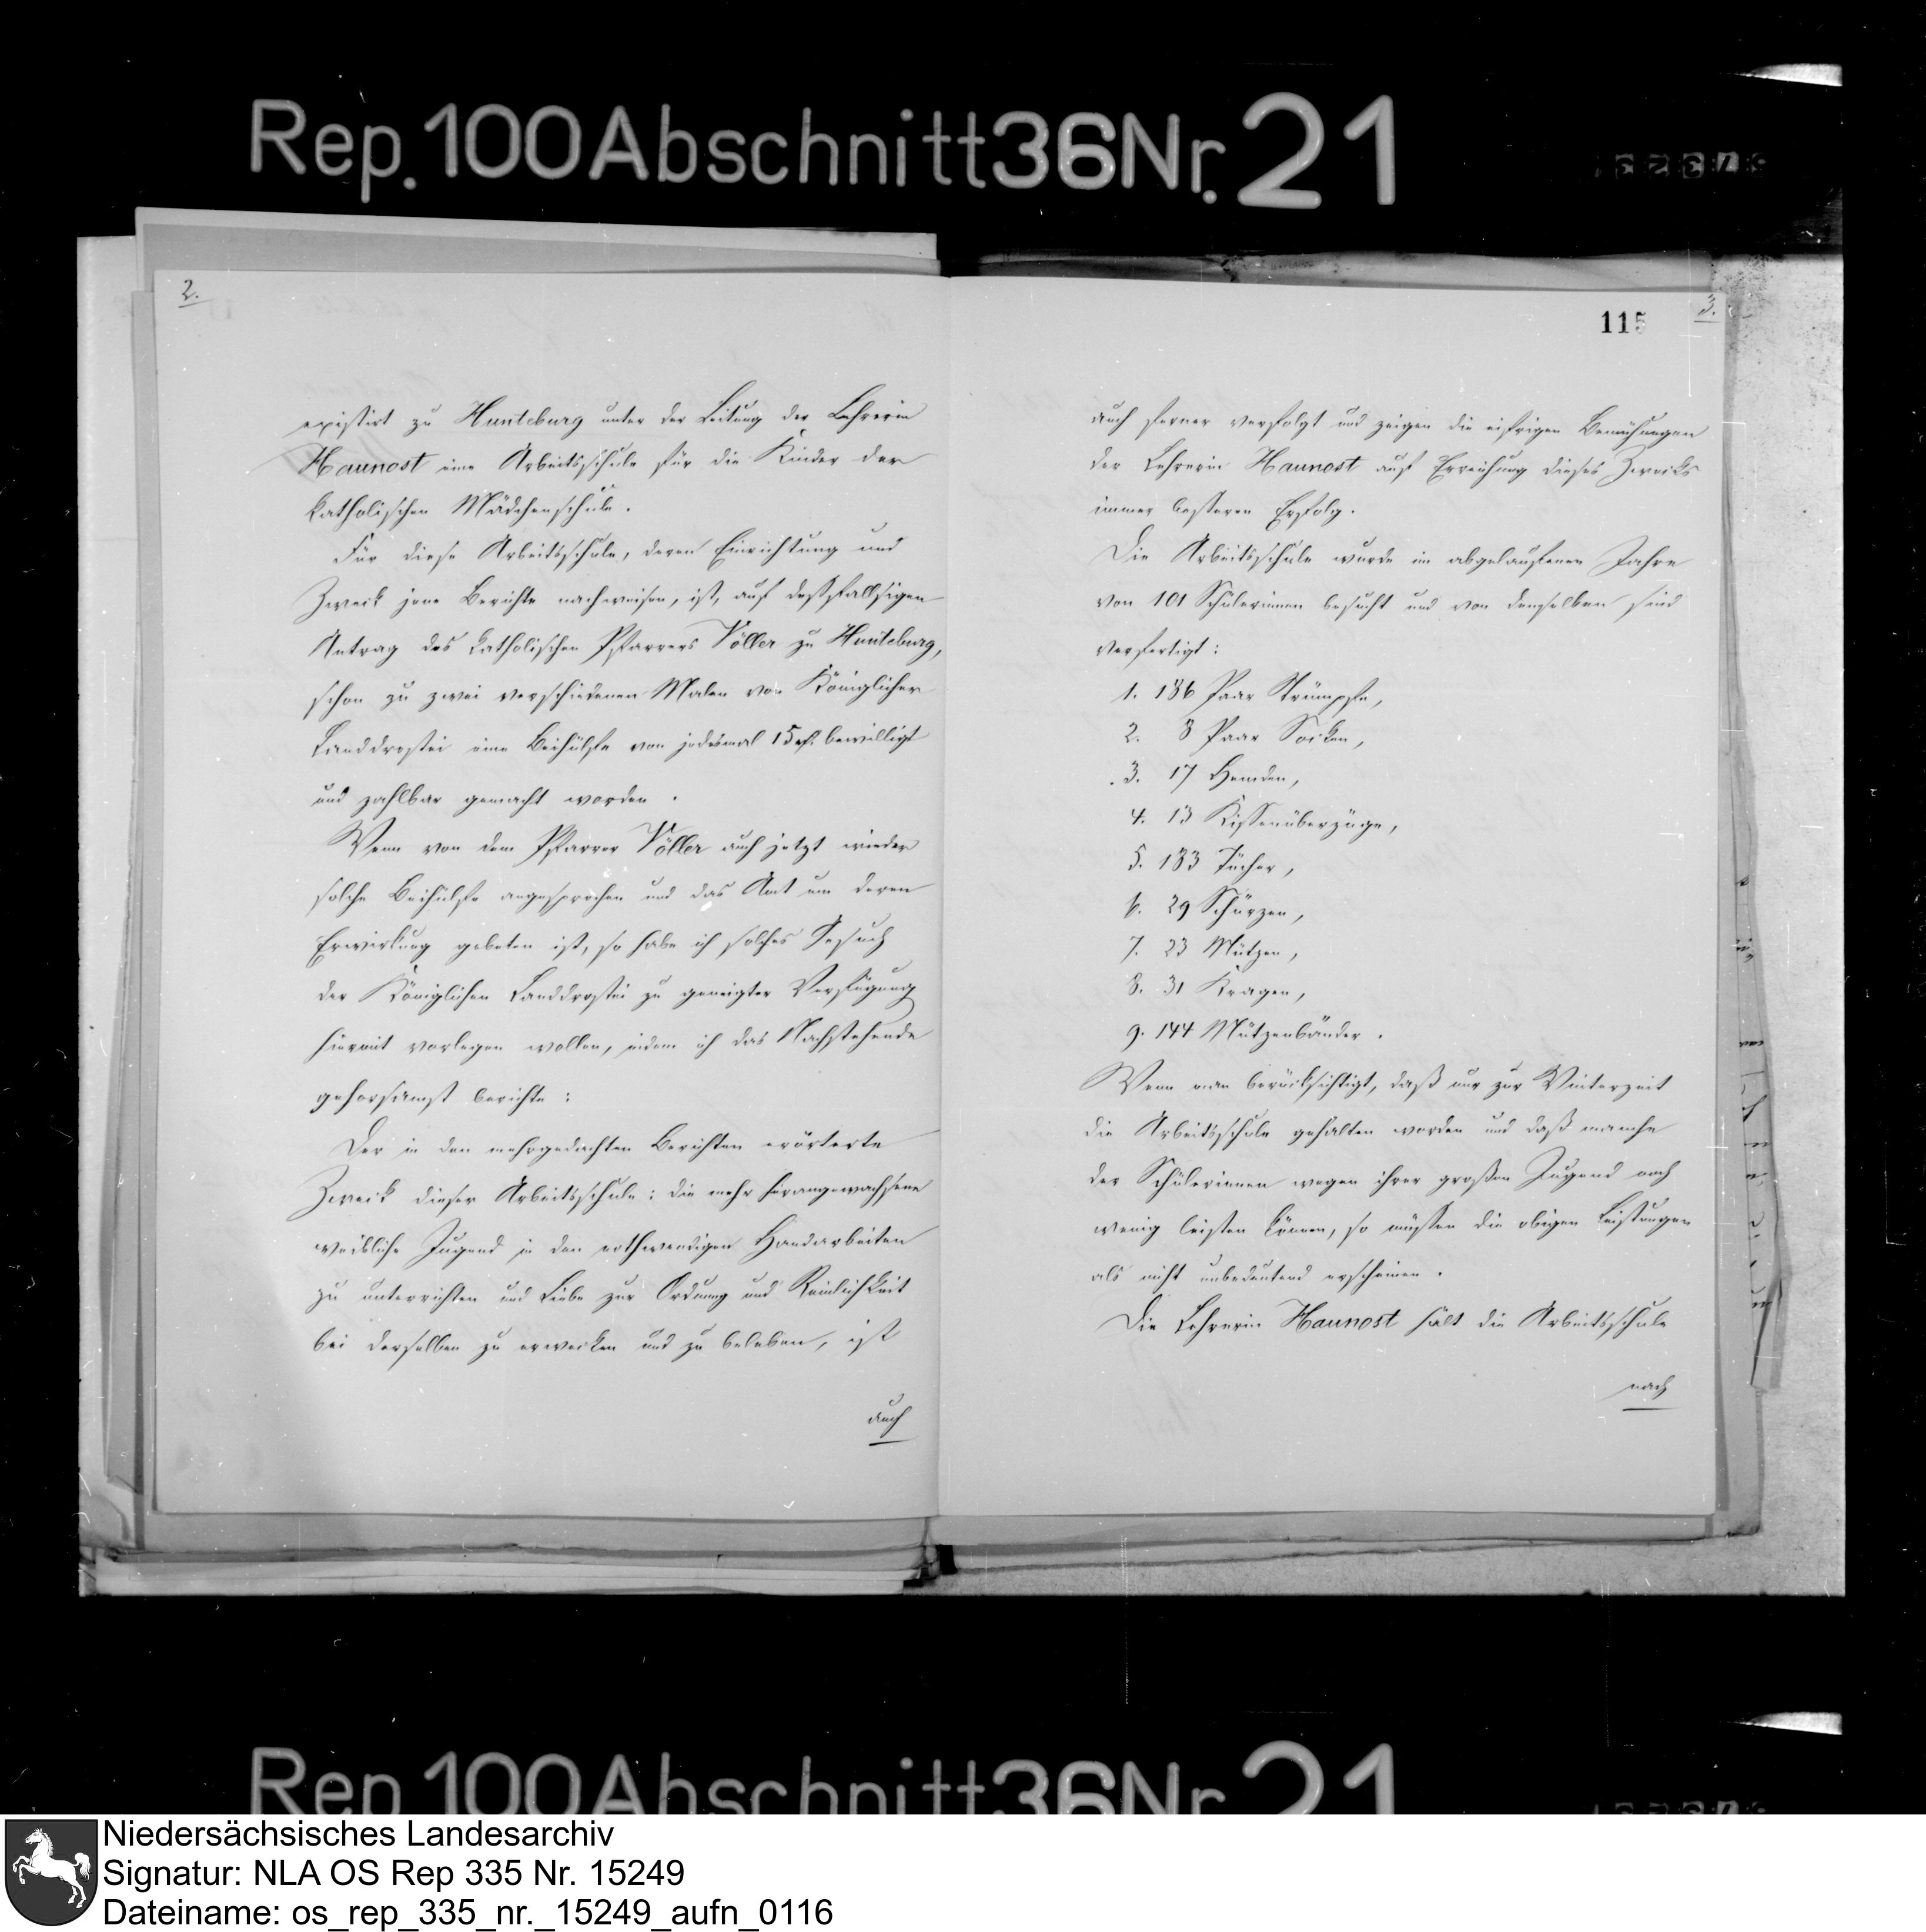 Rep. 100 Abschnitt 36 Nr. 21
2.
existirt zu Hunteburg unter der Leitung der Lehrerin
Haunost eine Arbeitsschule für die Kinder der
katholischen Mädchenschule.
Für diese Arbeitsschule, deren Einrichtung und
Zweck jene Berichte nachweisen, ist, auf desfallsigen
Antrag des katholischen Pfarrers Völler zu Hunteburg,
schon zu zwei verschiedenen Malen von Königlicher
Landdrostei eine Beihülfe von jedesmal 15 rt. bewilligt
und zahlbar gemacht worden.
Wenn von dem Pfarrer Völler auch jetzt wieder
solche Beihülfe angesprochen und das Amt um deren
Erwirkung gebeten ist, so habe ich solches Gesuch
der Königlichen Landdrostei zu geneigter Verfügung
hiermit vorlegen wollen, indem ich das Nachstehende
gehorsamst berichte:
Der in den mehrgedachten Berichten erörterte
Zweck dieser Arbeitsschule: die mehr herangewachsene
weibliche Jugend in den nothwendigen Handarbeiten
zu unterrichten und Liebe zur Ordnung und Reinlichkeit
bei derselben zu erwecken und zu beleben, ist
auch
115
3.
auch ferner verfolgt und zeigen die eifrigen Bemühungen
der Lehrerin Haunost auf Erreichung dieses Zwecks
immer besseren Erfolg.
Die Arbeitsschule wurde im abgelaufenen Jahre
von 101 Schülerinnen besucht und von denselben sind
verfertigt:
1. 136 Paar Strümpfe,
2. 8 Paar Socken,
3. 17 Hemden,
4. 13 Kissenüberzüge,
5. 133 Tücher,
6. 29 Schürzen,
7. 23 Mützen,
8. 31 Kragen,
9. 144 Mützenbänder.
Wenn man berücksichtigt, daß nur zur Winterzeit
die Arbeitsschule gehalten worden und daß manche
der Schülerinnen wegen ihrer großen Jugend noch
wenig leisten können, so müssen die obigen Leistungen
als nicht unbedeutend erscheinen.
Die Lehrerin Haunost hält die Arbeitsschule
nach
Rep. 100 Abschnitt 36 Nr. 21
Niedersächsisches Landesarchiv
Signatur: NLA OS Rep 335 Nr. 15249
Dateiname: os_rep_335_nr._15249_aufn_0116